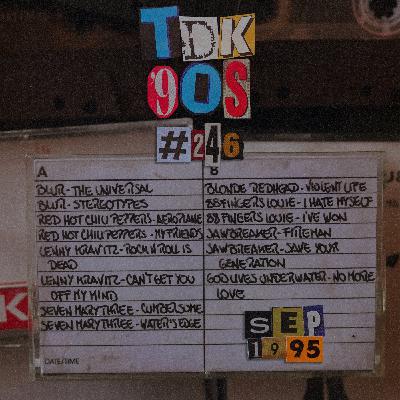 TDK
'90S
#246
A
B
BLUR - THE UNIVERSAL
BLUR - STEREOTYPES
RED HOT CHILI PEPPERS - AEROPLANE
RED HOT CHILI PEPPERS - MY FRIENDS
LENNY KRAVITZ - ROCK N ROLL IS
DEAD
LENNY KRAVITZ - CAN'T GET YOU
OFF MY MIND
SEVEN MARY THREE - CUMBERSOME
SEVEN MARY THREE - WATER'S EDGE
DATE/TIME
BLONDE REDHEAD - VIOLENT LIFE
88 FINGERS LOUIE - I HATE MYSELF
88 FINGERS LOUIE - I'VE WON
JAWBREAKER - FIREMAN
JAWBREAKER - SAVE YOUR
GENERATION
GOD LIVES UNDERWATER - NO MORE
LOVE
SEP
1995